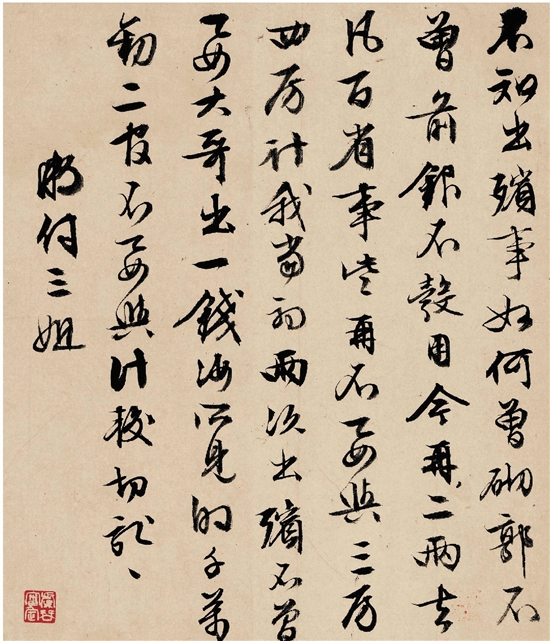 不知出殯事如何曾砌郭不
曾前銀不彀用今再二兩去
凡百省事些再不要與三房
四房計我當初兩次出殯不曾
要大哥出一錢所見的千萬
勸二官不要與計較切記、
明付三姐